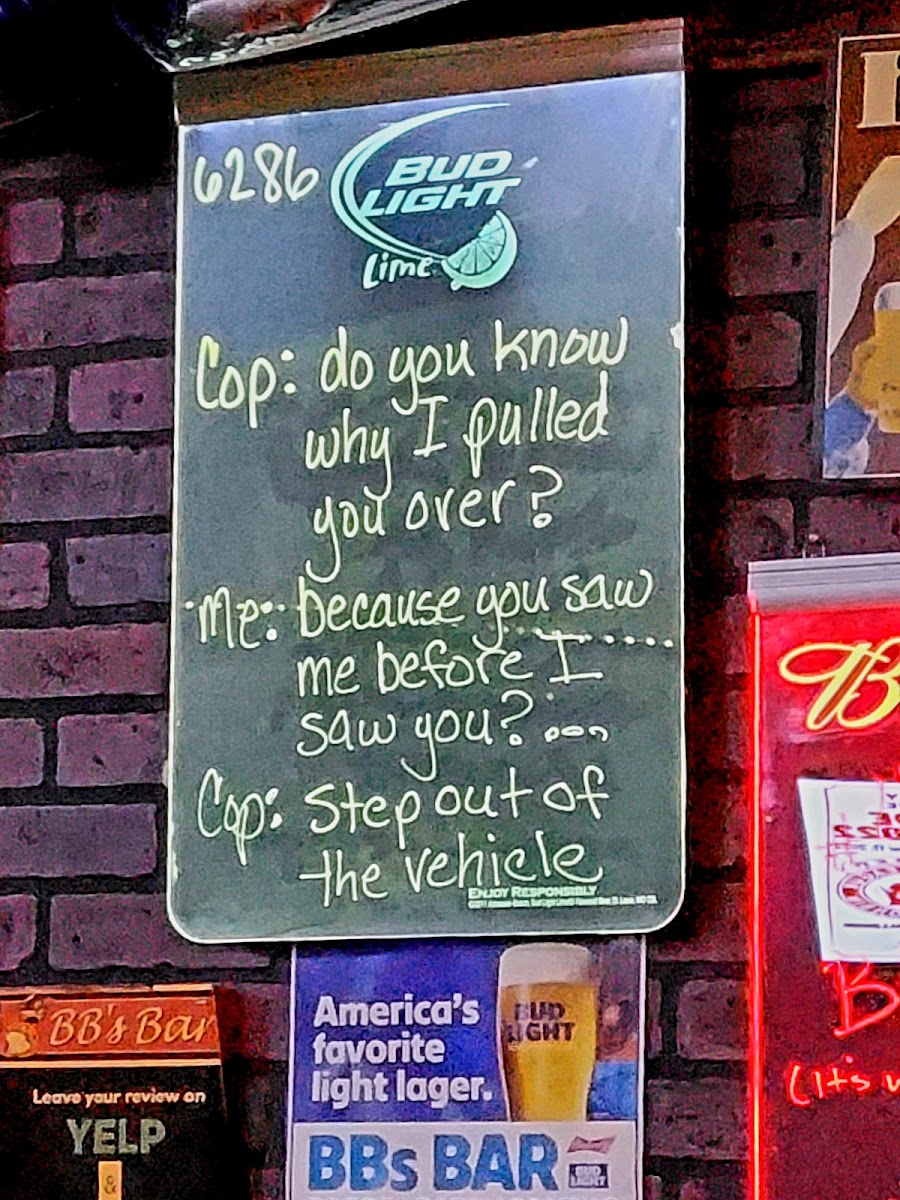 6286
BUD
LIGHT
Lime
Cop: do you know
why I pulled
you over?
Me: because you saw
me before I
saw you? ...
Cop: Step out of
the vehicle
ENJOY RESPONSIBLY
America's
favorite
light lager.
BUD
LIGHT
BBs BAR
BUD
LIGHT
BB's Bar
Leave your review on
YELP
&
B
B
(it's